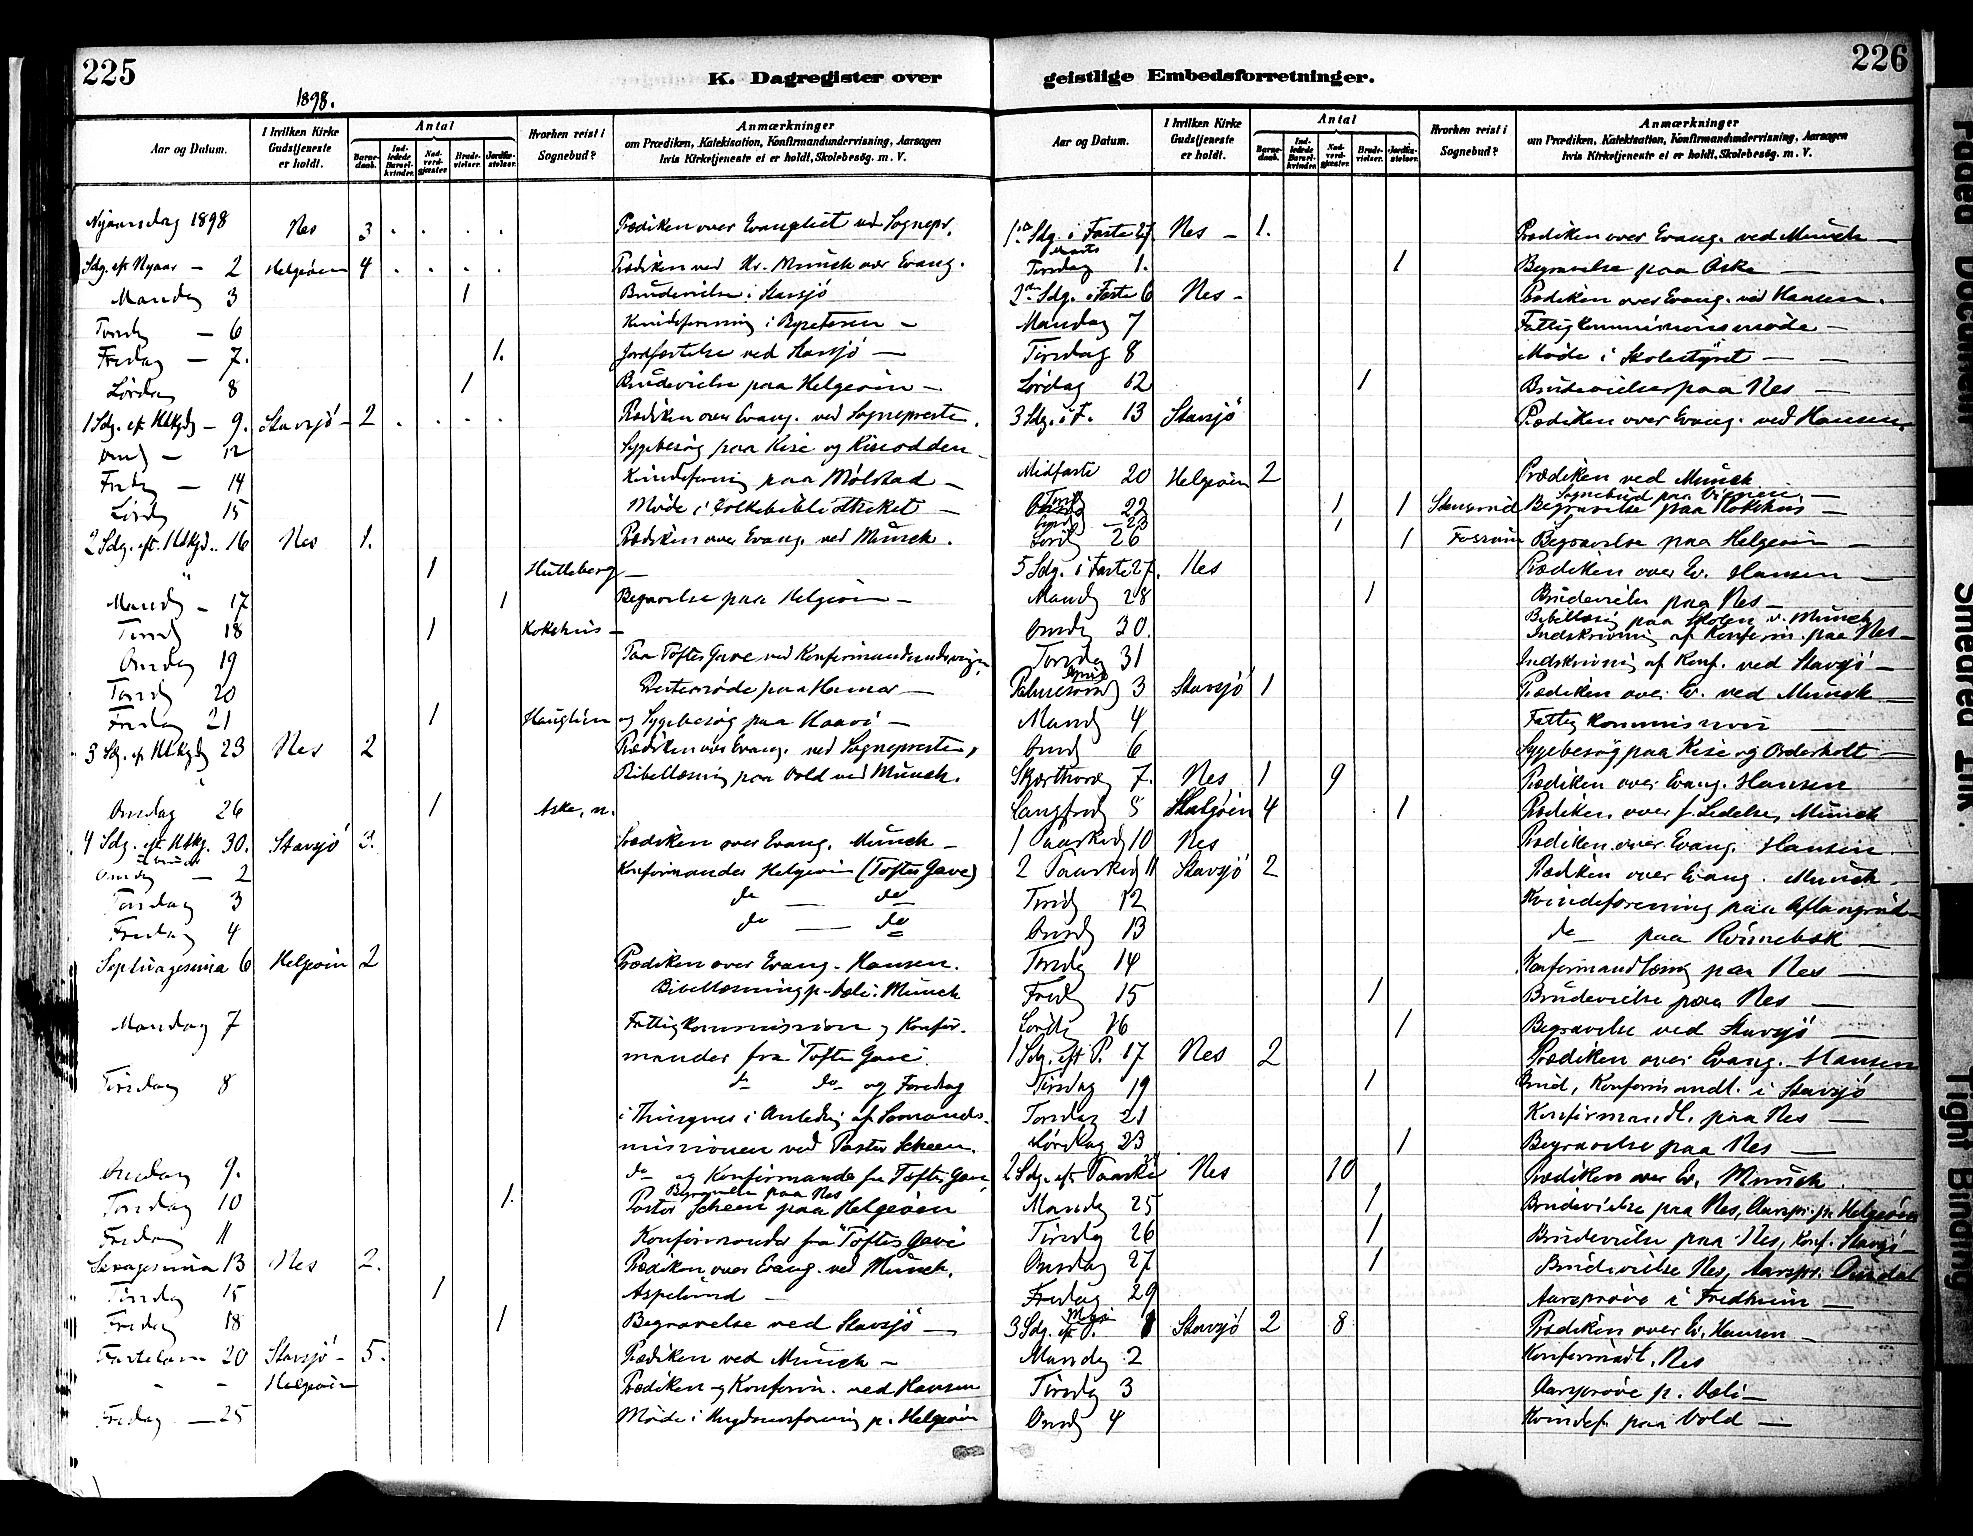 225
K. Dagregister over
1898.
Aar og Datum.
I hvilken Kirke Gudstjeneste er holdt.
Antal
Barne-daab.
Ind-ledede Barsel-kvinder.
Nad-verd-gjæster.
Brude-vielser.
Jordfæ-stelser.
Hvorhen reist i Sognebud?
Anmærkninger
om Prædiken, Katekisation, Konfirmandundervisning, Aarsagen
hvis Kirketjeneste ei er holdt, Skolebesøg. m. V.
Nyaarsdag 1898 Nes 3 . . . . Prædiken over Evangeliet ved Sognepr.
Sdg. eft Nyaar — 2 Helgeøen 4 . . . . Prædiken ved Hr. Munch over Evang.
Mandag 3 1 Brudevielse i Stavsjö
Torsdg — 6 Kvindeforening i —
Fredag — 7. 1. Jordfæstelse ved Stavsjö —
Lördag 8 1 Brudevielse paa Helgeöen —
1 Sdg. eft Hlkgdg — 9. Stavsjö — 2 . . . . Prædiken over Evang. ved Sognepresten.
Onsdg — 12 Sygebesög paa Kise og Kiseodden —
Fredag — 14 Kvindeforening paa Mölstad —
Lördg 15 Möde i Folkebibliotheket —
2 Sdg. eft. Hlkgd.. 16 Nes 1. Prædiken over Evang. ved Munch.
" 1 Hutteberg —
Mandg — 17 1 Begravelse paa Helgeöen —
Tirsdg 18 1 Kokshus —
Onsdag 19 Paa Toftes Gave ved Konfirmandundervisgn.
Torsdg 20 Prestemöde paa Hamar —
Fredag 21 1 og Sygebesög paa —
3 Sdg. ef Hlkgdg 23 Nes 2 Prædiken over Evang. ved Sognepresten,
Bibellæsning paa Vold ved Munch.
Onsdag 26 1 Aske, n.
4 Sdg. eft Hlkg. 30. Stavsjö 3. Prædiken over Evang. Munch —
Februar
Onsdg — 2 Konfirmander Helgeöen (Toftes Gave)
Torsdag 3 do — do
Fredag 4 do — do
Septuagesima 6 Helgeöen 2 Prædiken over Evang. Hansen.
Bibellæsning p. Dæli: Munch
Mandag 7 Fattigkommission og Konfir-
mander fra Toftes Gave.
Tirsdag 8 do do og Foredrag
i Thingnes i Anledng af Sömands-
missionen ved Pastor Scheen.
Onsdag 9. do og Konfirmander fra Toftes Gave,
Begravelse paa Nes
Torsdag 10 1. Pastor Scheen paa Helgeöen
Fredag 11 Konfirmander fra Toftes Gave
Sexagesima 13 Nes 2. Prædiken over Evang. ved Munch.
Tirsdag 15 1 Aspelund —
Fredag 18 1 Begravelse ved Stavsjö —
Fastelavn 20 Stavsjö — 5. Prædiken ved Munch —
- - Helgeöen Prædiken og Konfirm. ved Hansen
Fredag — 25 Möde i Ungdomsforening p. Helgeöen
226
geistlige Embedsforretninger.
Aar og Datum.
I hvilken Kirke Gudstjeneste er holdt.
Antal
Barne-daab.
Ind-ledede Barsel-kvinder.
Nad-verd-gjæster.
Brude-vielser.
Jordfæ-stelser.
Hvorhen reist i Sognebud?
Anmærkninger
om Prædiken, Katekisation, Konfirmandundervisning, Aarsagen
hvis Kirketjeneste ei er holdt, Skolebesøg. m. V.
1ste Sdg. i Faste 27. Nes — 1. Prædiken over Evang. ved Munch —
Marts
Tirsdag 1. 1 Begravelse paa Aske —
2den Sdg. i Faste 6 Nes — Prædiken over Evang. ved Hansen.
Mandag 7 Fattigkommissionsmöde —
Tirsdag 8 Möde i Skolestyret —
Lördag 12 1 Brudevielser paa Nes —
3 Sdg. i F. 13 Stavsjö Prædiken over Evang. ved Hansen.
Midfaste 20 Helgeöen 2 Prædiken ved Munch
Sognebud paa —
22 1 1 Begravelse paa Kokshus —
23 1
Lördg 26 1 Begravelse paa Helgeöen —
5 Sdg. i Faste 27. Nes Prædiken over Ev. Hansen —
Mandg 28 1 Brudevielse paa Nes —
Bibellæsng paa Skolen v. Munch
Onsdg 30. Indskrivning af Konfirm. paa Nes —
Torsdag 31 Indskrivning af Konf. ved Stavsjö —
April
Palmesönd 3 Stavsjö 1 Prædiken over Ev. ved Munch —
Mandg 4 Fattigkommission —
Onsd 6 Sygebesög paa Kise og —
Skjærthorsd 7. Nes 1 9 Prædiken over Evang. Hansen
Langfred 8 Helgöen 4 1 Prædiken over J. Lidelse, Munch
1 Paaskedg 10 Nes Prædiken over Evang. Hansen
2 Paaskedg 11 Stavsjö 2 Prædiken over Evang. Munch.
Tirsdg 12 Kvindeforening paa —
Onsdg 13 do paa Rönnebæk —
Torsdg 14 Konfirmandlæsng paa Nes —
Fredg 15 1 Brudevielse paa Nes —
Lördg 16 1 Begravelse ved Stavsjö —
1 Sdg. eft P. 17 Nes 2 Prædiken over Evang. Hansen
Tirsdag 19 1 Brud, Konfirmandl. i Stavsjö
Torsdag 21 Konfirmandl. paa Nes —
Lördag 23 1 Begravelse paa Nes —
2 Sdg. eft Paaske Nes 10 Prædiken over Ev. Munch.
Mandg 25 1 Brudevielse paa Nes, Aarspr. p. Helgeöen
Tirsdg 26 1 Brudevielse paa Nes, Konf. Stavsjö —
Onsdag 27 1 Brudevielse Nes, Aarspr.
Fredag 29 Aarspröve i Fredheim —
Mai
3 Sdg. ef P. 1 Stavsjö 2 8 Prædiken over Ev. Hansen —
Mandg 2 Konfirmdl. Nes
Tirsdg 3 Aarspröve p. Dæli —
Onsdg 4 Kvindef. paa Vold —
Faded Document
Smeared Ink.
Tight Binding